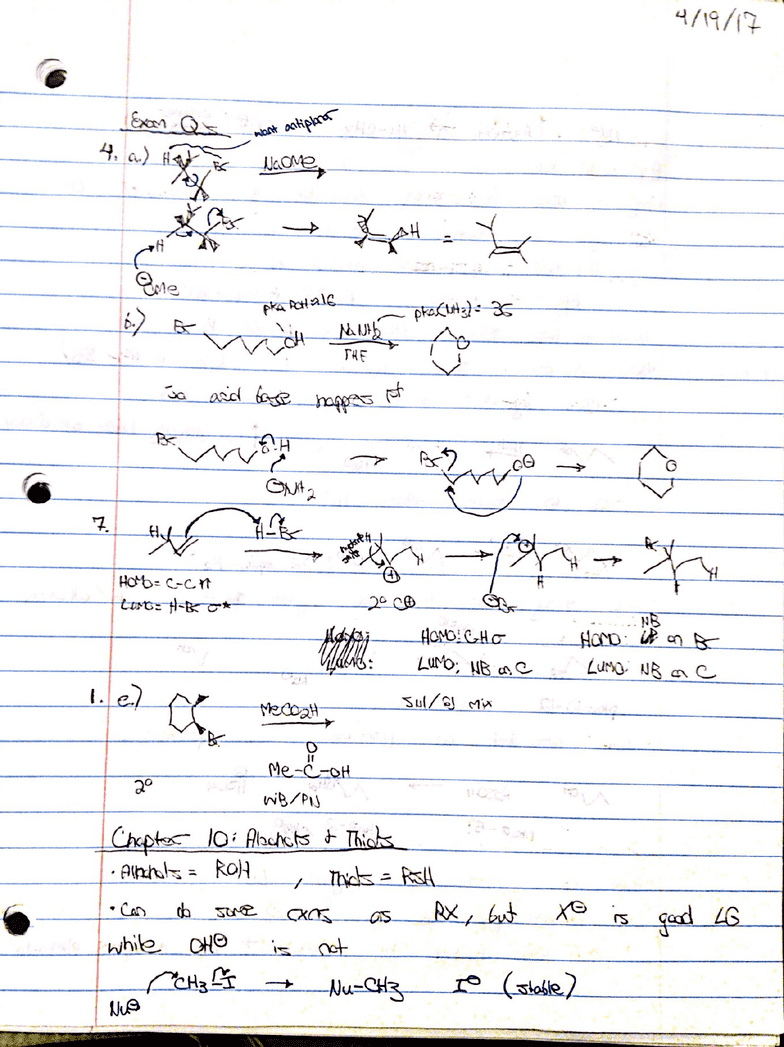 4/19/17
Exam Qs
want antiplanar
4. a.) H Br NaOMe
H Br H =
⊖OMe
pka ROH≈16 pka(NH3)= 36
b.) Br OH NaNH2 O
THF
so acid base happens 1st
Br O-H Br O⊖ O
⊖NH2
7. H H-Br H H Br
⊕ ⊕ H H
HOMO= C-C π
LUMO= H-Br σ* 2° C⊕ ⊖Br
HOMO: C-H σ HOMO: NB on Br
LUMO: NB on C LUMO: NB on C
1. e.) MeCO2H SN1/E1 mix
Br
O
2° Me-C-OH
WB/PN
Chapter 10: Alcohols & Thiols
• Alcohols = ROH , Thiols = RSH
• Can do some rxns as RX, but X⊖ is good LG
while OH⊖ is not
CH3-I → Nu-CH3 I⊖ (stable)
Nu⊖